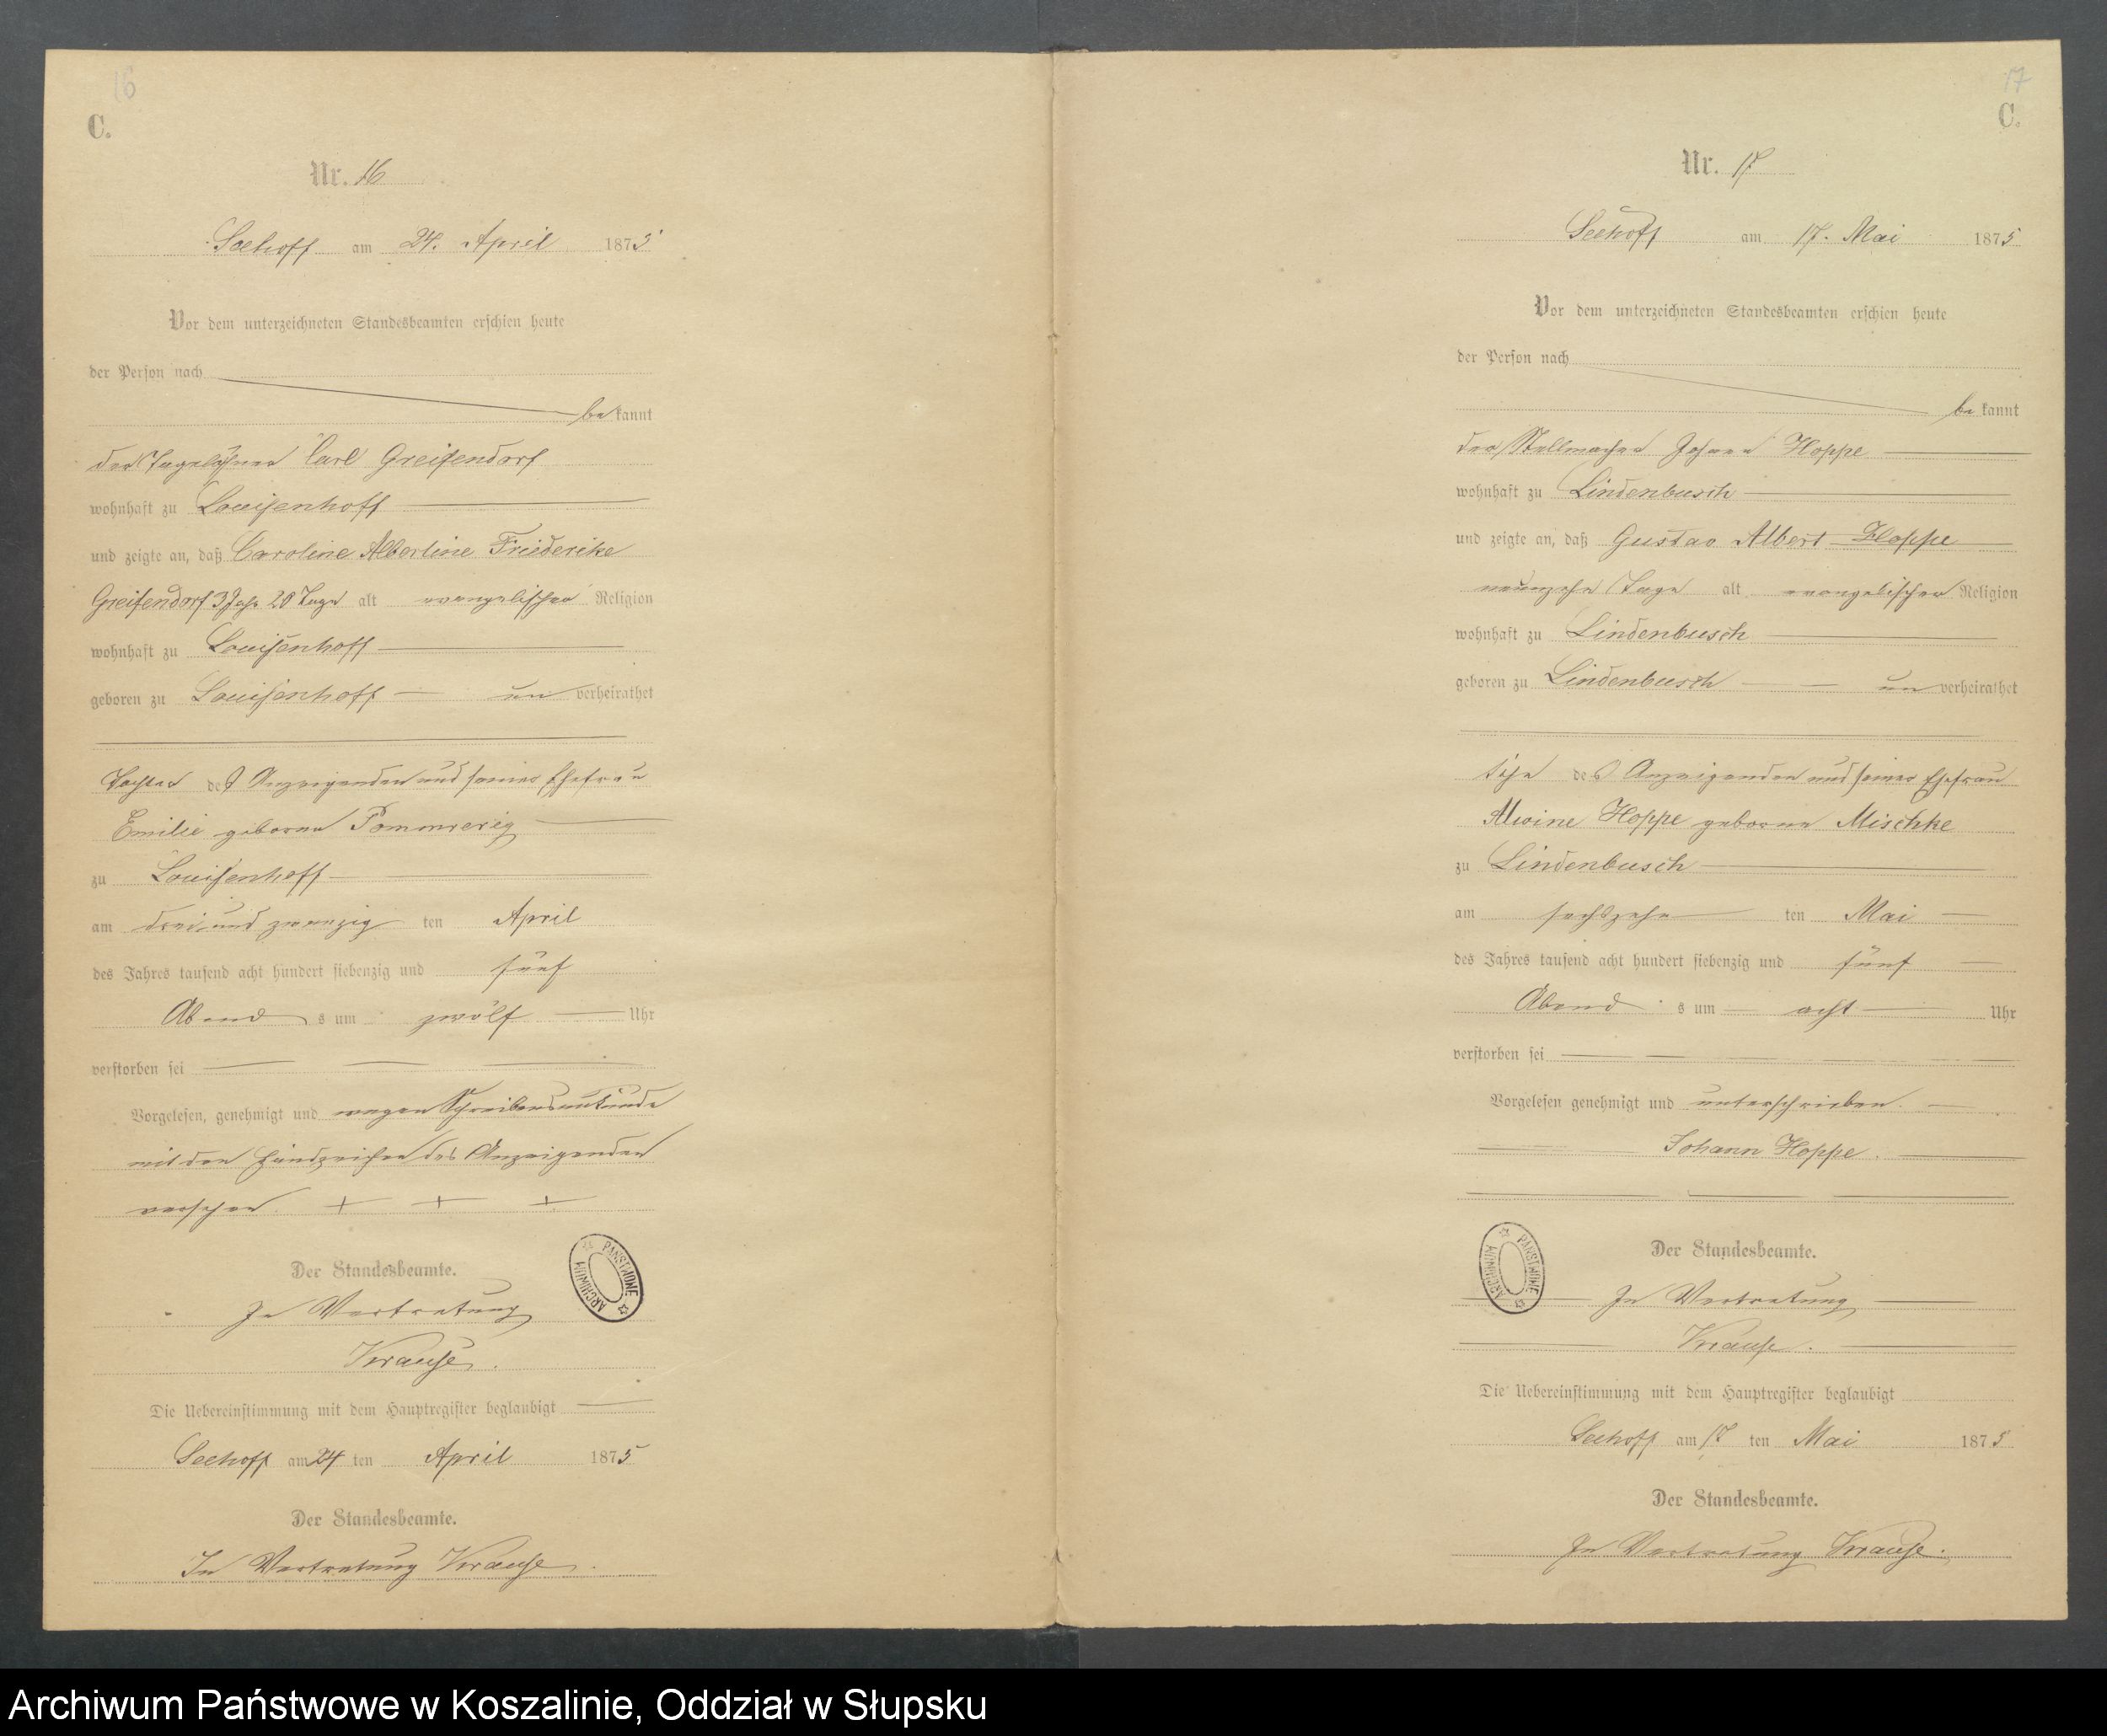 16
C.
Nr. 16
Seehoff am 24. April 1875
Vor dem unterzeichneten Standesbeamten erschien heute
der Person nach
bekannt
der Tagelöhner Carl Greifendorf
wohnhaft zu Louisenhoff
und zeigte an, daß Caroline Albertine Friederike
Greifendorf 3 Jahr 20 Tage alt evangelischer Religion
wohnhaft zu Louisenhoff
geboren zu Louisenhoff unverheirathet
Tochter des Anzeigenden und seiner Ehefrau
Emilie geborne Pommerenig
zu Louisenhoff
am drei und zwanzig ten April
des Jahres tausend acht hundert siebenzig und fünf
Abends um zwölf Uhr
verstorben sei
Vorgelesen, genehmigt und wegen Schreibensunkunde
mit den Handzeichen des Anzeigenden
versehen. + + +
Der Standesbeamte.
In Vertretung
Krause.
Die Uebereinstimmung mit dem Hauptregister beglaubigt
Seehoff am 24 ten April 1875
Der Standesbeamte.
In Vertretung Krause.
ARCHIWUM PAŃSTWOWE
17
C.
Nr. 17
Seehoff am 17. Mai 1875
Vor dem unterzeichneten Standesbeamten erschien heute
der Person nach
bekannt
der Stellmacher Johann Hoppe
wohnhaft zu Lindenbusch
und zeigte an, daß Gustav Albert Hoppe
neunzehn Tage alt evangelischer Religion
wohnhaft zu Lindenbusch
geboren zu Lindenbusch unverheirathet
Sohn des Anzeigenden und seiner Ehefrau
Alwine Hoppe geborne Mischke
zu Lindenbusch
am sechszehn ten Mai
des Jahres tausend acht hundert siebenzig und fünf
Abends um acht Uhr
verstorben sei
Vorgelesen genehmigt und unterschrieben.
Johann Hoppe.
Der Standesbeamte.
In Vertretung
Krause.
Die Uebereinstimmung mit dem Hauptregister beglaubigt
Seehoff am 17 ten Mai 1875
Der Standesbeamte.
In Vertretung Krause.
ARCHIWUM PAŃSTWOWE
Archiwum Państwowe w Koszalinie, Oddział w Słupsku